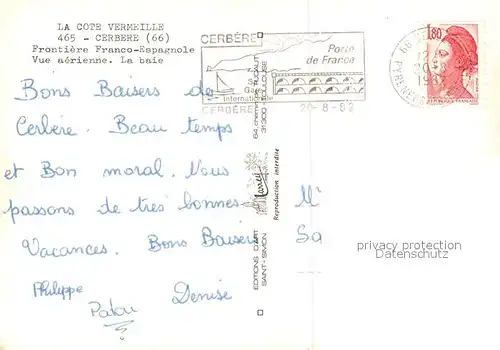 LA COTE VERMEILLE
465 - CERBERE (66)
Frontière Franco-Espagnole
Vue aérienne. La baie
Bons Baisers de
Cerbère. Beau temps
et Bon moral. Nous
passons de très bonnes
Vacances. Bons Baisers
Philippe
Patou
Denise
CERBÈRE
Porte
de France
Internationale
CERBÈRE
20-8-82
1,80
REPUBLIQUE FRANCAISE
66 PYRENEES
EDITIONS D'ART
SAINT-SIMON
31300 TOULOUSE
Reproduction interdite
M
Sa
privacy protection
Datenschutz